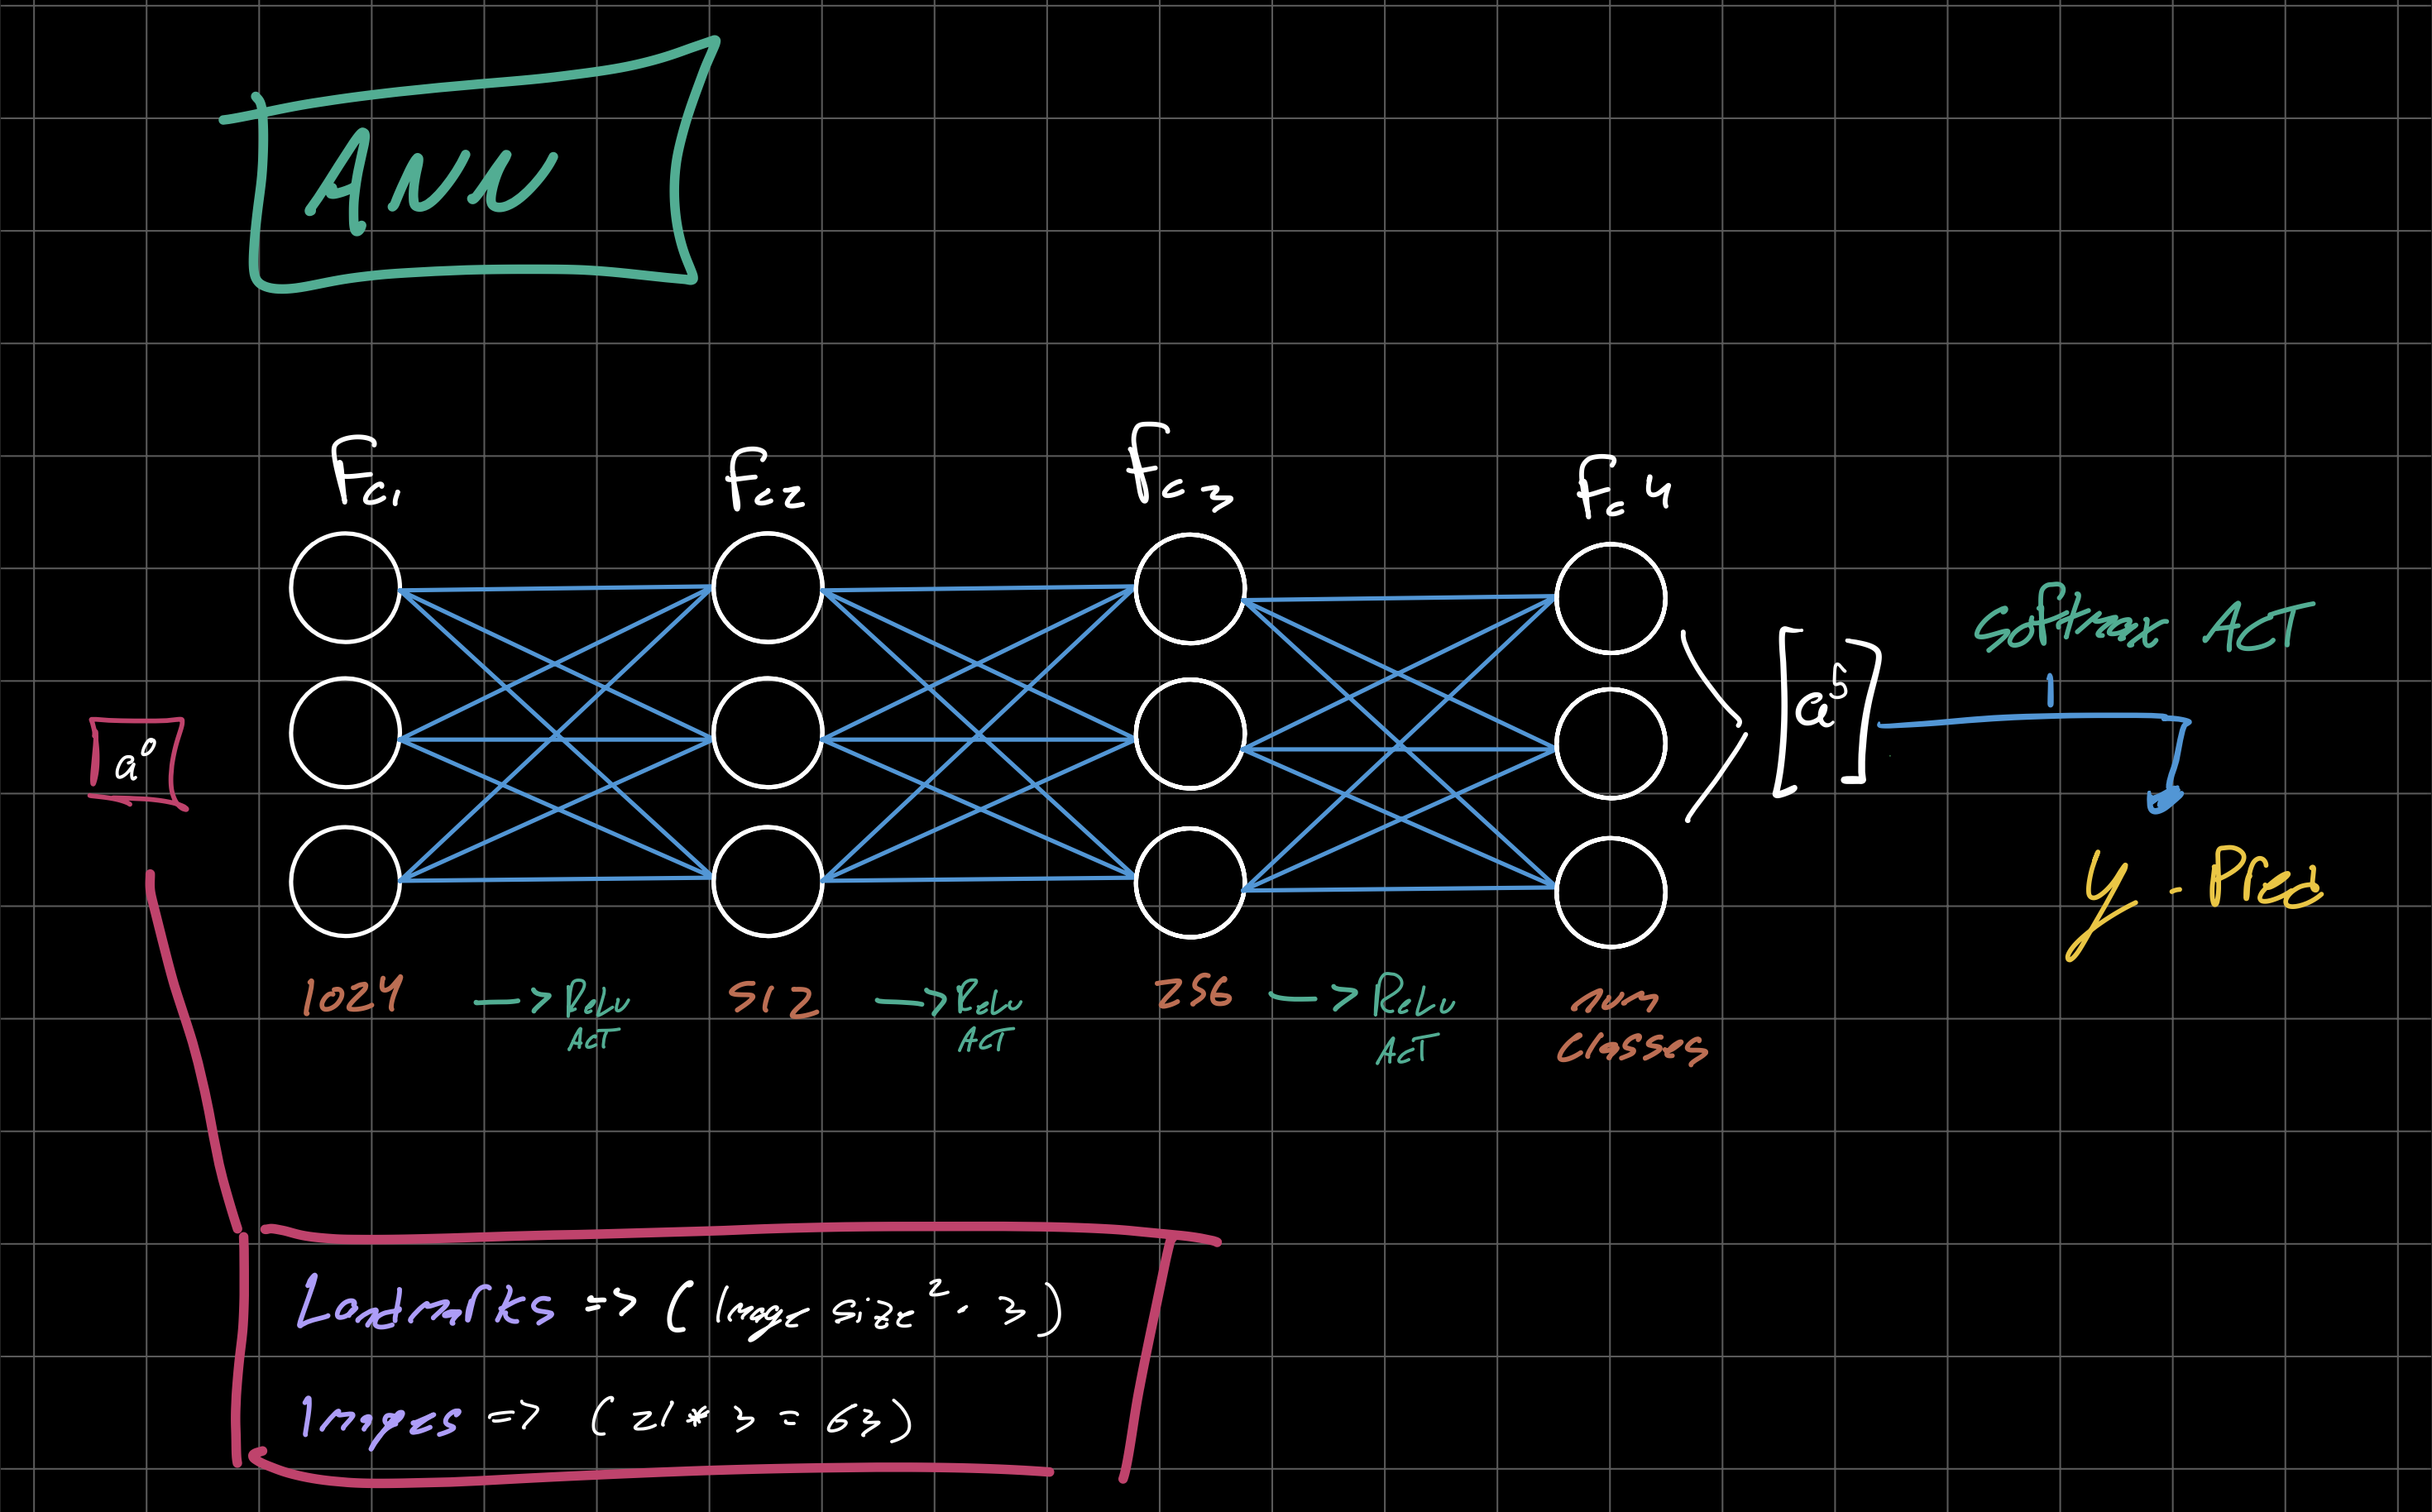 ANN
Fc1
fc2
fc3
fc4
a⁰
[a⁵]
Softmax ACT
y - Pred
1024 -> ReLu ACT
512 -> ReLu ACT
256 -> ReLu ACT
num classes
Landmarks => (Image size² · 3)
Images => (21 * 3 = 63)